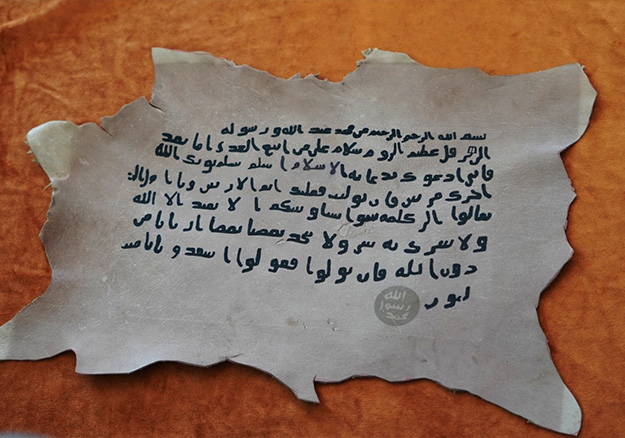 بسم الله الرحمن الرحيم من محمد عبد الله ورسوله
الى هرقل عظيم الروم سلام على من اتبع الهدى اما بعد
فاني ادعوك بدعاية الاسلام اسلم تسلم يوتك الله
اجرك مرتين فان توليت فعليك اثم الاريسين ويا
تعالوا الى كلمة سوا بيننا وبينكم الا نعبد الا الله
ولا نشرك به شيا ولا يتخذ بعضنا بعضا اربابا من
دون الله فان تولوا فقولوا اشهدو بانا مسـ
لمون
الله
رسول
محمد